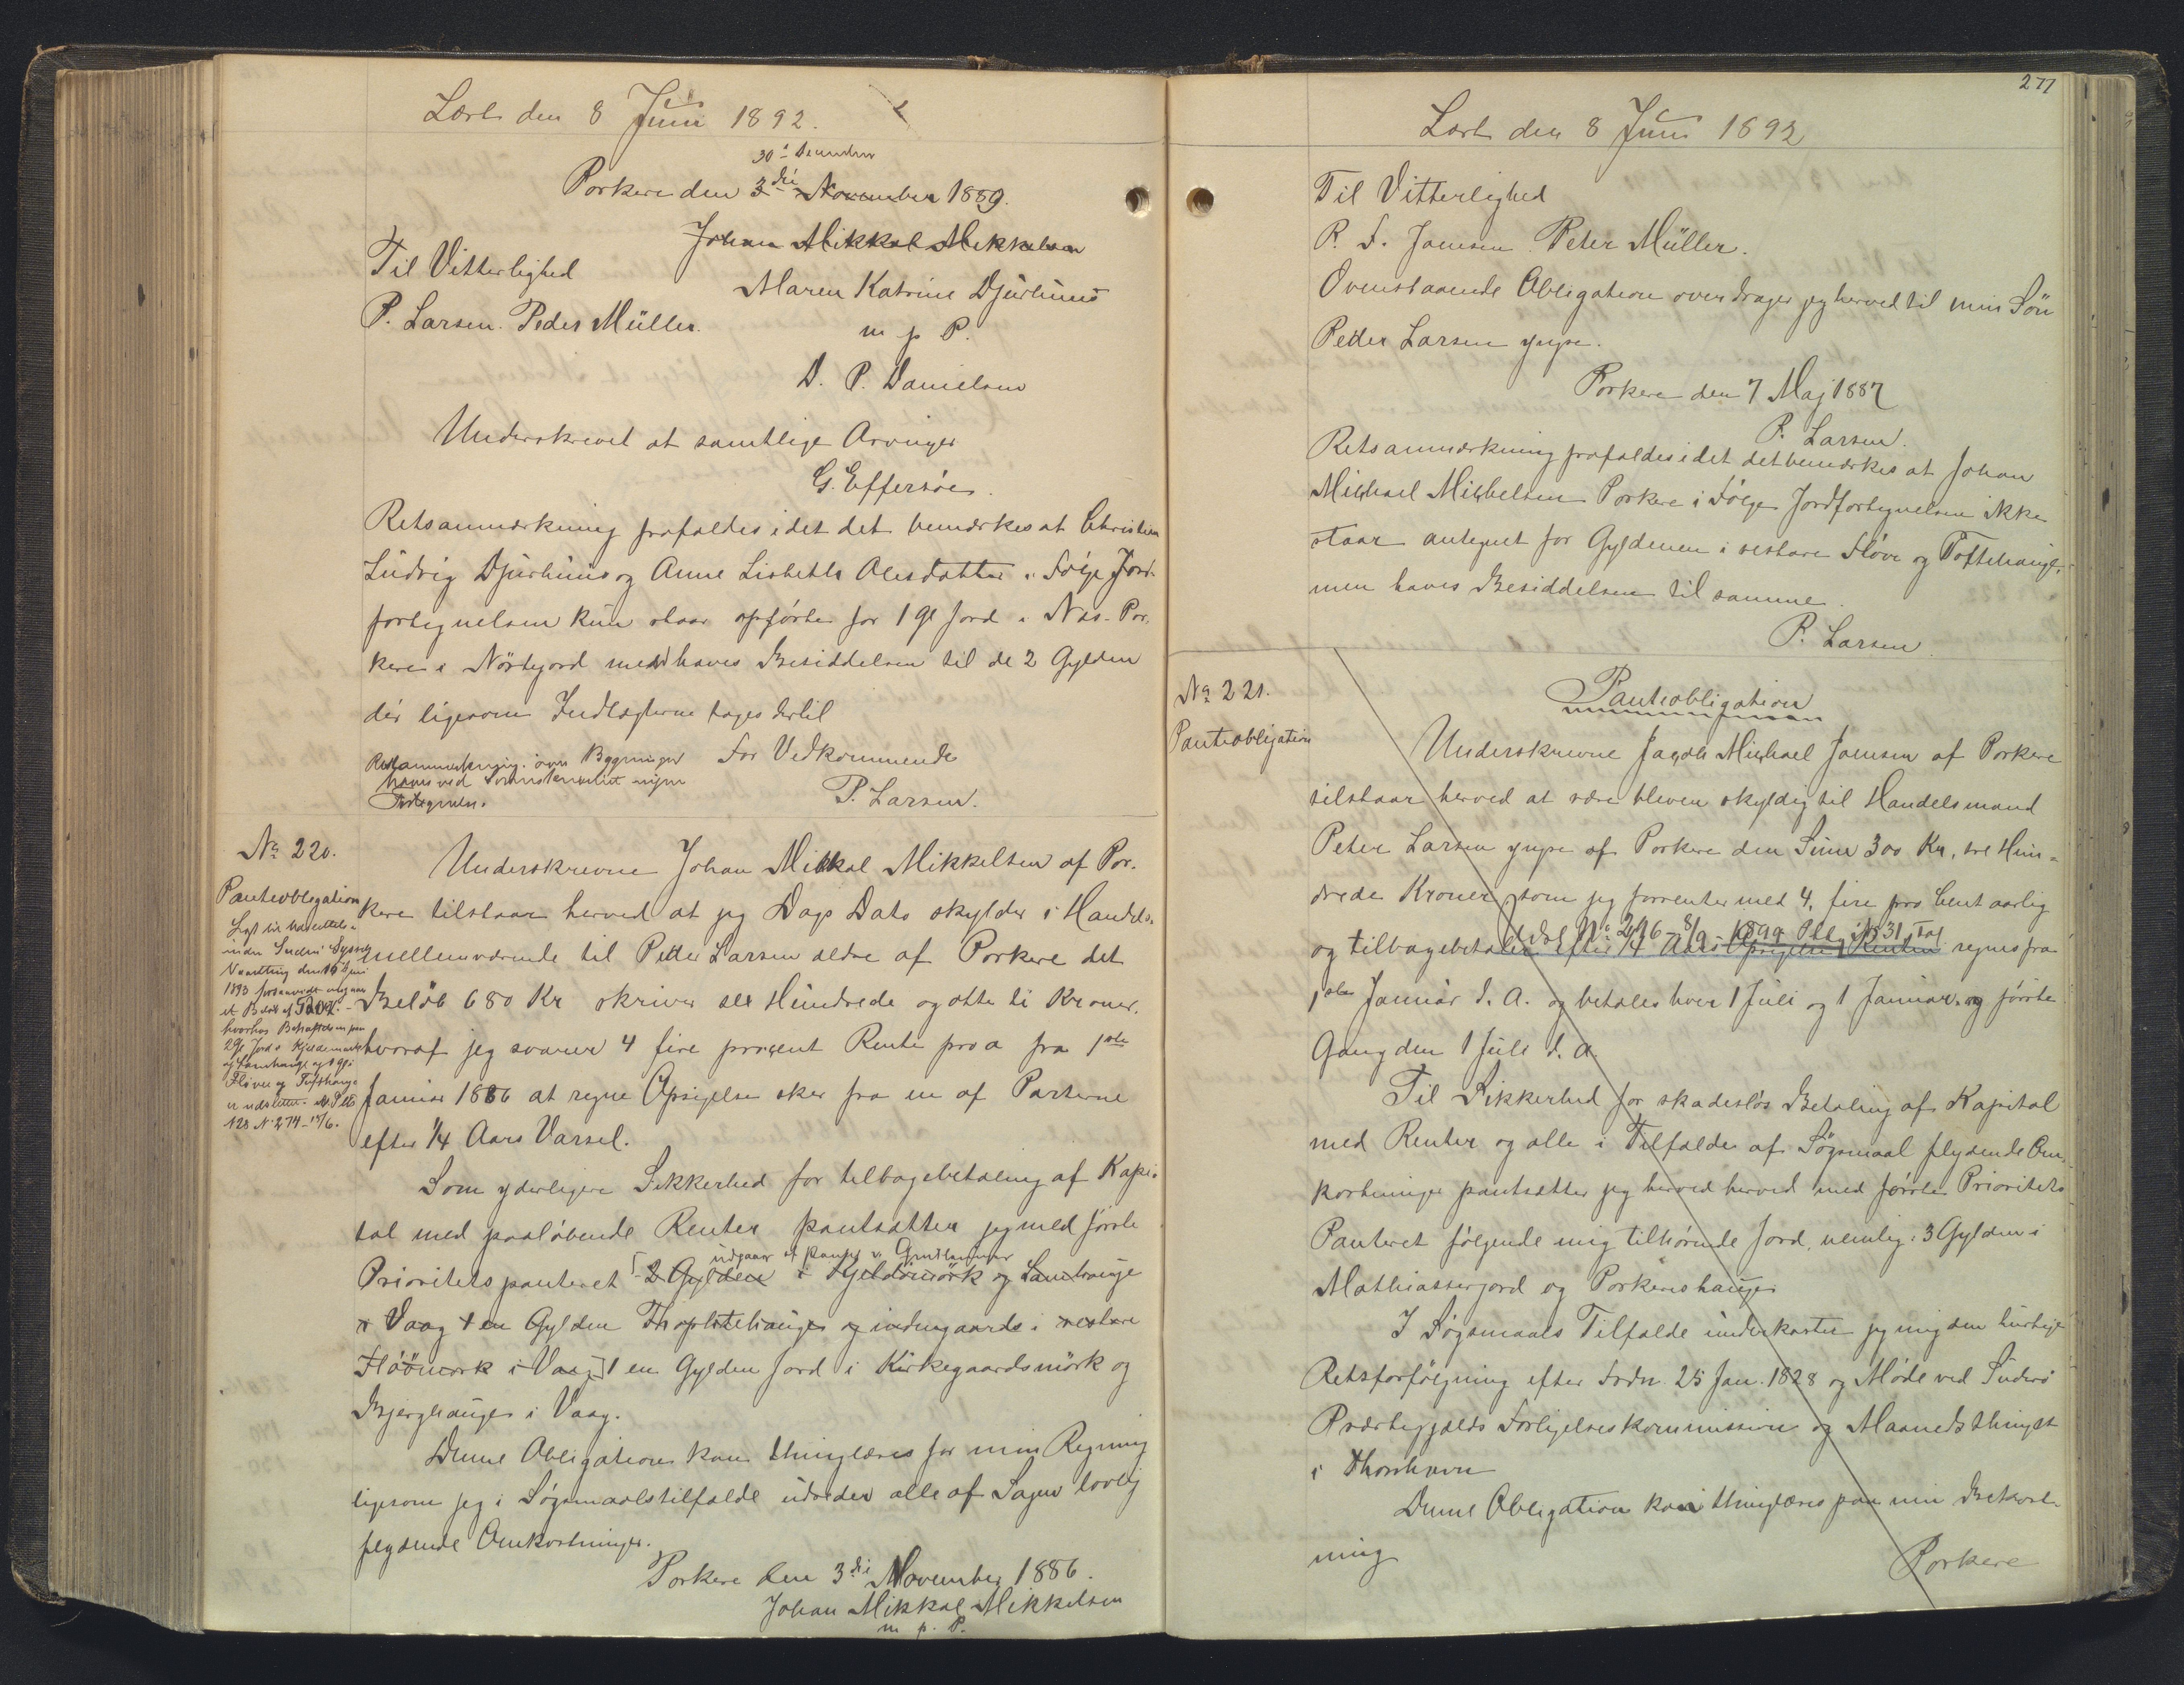 Læst den 8 Juni 1892.
30te December
Porkere den 3die November 1889.
Johan Mikkal Mikkelsen
Til Vitterlighed
Maren Katrine Djurhuus
P. Larsen. Peder Müller.
m p P.
D. P. Danielsen
Underskrevet at samtlige Arvinger
G. Effersöe.
Retsanmærkning frafaldes idet det bemærkes at Christian
Ludvig Djurhuus og Anne Lisbeth Olesdatter i Følge Jord-
fortegnelsen kun staar opførte for 1 Gl Jord i Næs-Por-
kere i Nörtegjord men haves Besiddelsen til de 2 Gylden
der ligesom Indtægterne tages dertil
Retsanmærkning: over Bygninger
haves ved Sorenskriveriet ingen
Fortegnelse.
For Vedkommende
P. Larsen.
No 220.
Panteobligation
Lyst til Udslettelse
inden Suderö Syssels
Vaarting den 15 Juni
1893 forsaavidt angaar
et Beløb af
hvorhos Behæftelsen paa
2 Gl Jord i Kjeldemørk
og Lambhauge og 1 Gl i
Fløven og Toftehauge
er udslettet. M. P. Pr.
128 No 274 - 15/6.
Underskrevne Johan Mikkal Mikkelsen af Por-
kere tilstaar herved at jeg Dags Dato skylder i Handels-
mellemværende til Peder Larsen ældre af Porkere det
Beløb 680 Kr skriver sex Hundrede og otte ti Kroner,
hvoraf jeg svarer 4 fire procent Rente pro a fra 1ste
Januar 1886 at regne Opsigelse sker fra en af Parterne
efter 1/4 Aars Varsel.
Som yderligere Sikkerhed for tilbagebetaling af Kapi-
tal med paaløbende Renter pantsætter jeg med første
udgaar af Pantet v. Grundlanner
Prioritets panteret [2 Gylden i Kjeldemörk og Lambhauge
i Vaag 1 en Gylden Thoftehauge og indengaards i vestere
Flöömork i Vaag] 1 en Gylden Jord i Kirkegaardsmörk og
Bjerghauge i Vaag.
Denne Obligation kan thinglæses for min Regning
ligesom jeg i Søgsmaalstilfælde udreder alle af Sagen lovlig
flydende Omkostninger.
Porkere den 3die November 1886.
Johan Mikkal Mikkelsen
m p. P.
277
Læst den 8 Juni 1892
Til Vitterlighed
P. F. Joensen Peter Müller.
Ovenstaaende Obligation overdrager jeg herved til min Sön
Peder Larsen yngre.
Porkere den 7 Maj 1887
P. Larsen.
Retsanmærkning frafaldes idet det bemærkes at Johan
Michael Michelsen Porkere i Følge Jordfortegnelsen ikke
staar antegnet for Gyldenen i vestare Flöve og Toftehauge,
men haves Besiddelsen til samme.
P. Larsen.
No 221.
Panteobligation
Panteobligation
Underskrevne Jacob Michael Joensen af Porkere
tilstaar herved at være bleven skyldig til Handelsmand
Peter Larsen yngre af Porkere den Sum 300 Kr, tre Hun-
drede Kroner, som jeg forrenter med 4, fire pro Cent aarlig
og tilbagebetaler efter 1/4 Aars Opsigelse Renten regnes fra
1ste Januar d. A. og betales hver 1 Juli og 1 Januar og første
Gang den 1 Juli d. A.
Til Sikkerhed for skadesløs Betaling af Kapital
med Renter og alle i Tilfælde af Søgsmaal flydende Om-
kostninger pantsætter jeg herved herved med første Prioritets
Panteret følgende mig tilhørende Jord, nemlig: 3 Gylden i
Mathiasserjord og Porkereshauge
I Søgsmaals Tilfælde underkaster jeg mig den hurtige
Retsforfølgning efter Frdn. 25 Jan. 1828 og Møde ved Suderö
Præstegjælds Forligelseskommission og Maanedsthinget
i Thorshavn
Denne Obligation kan thinglæses paa min Bekost-
ning
Porkere